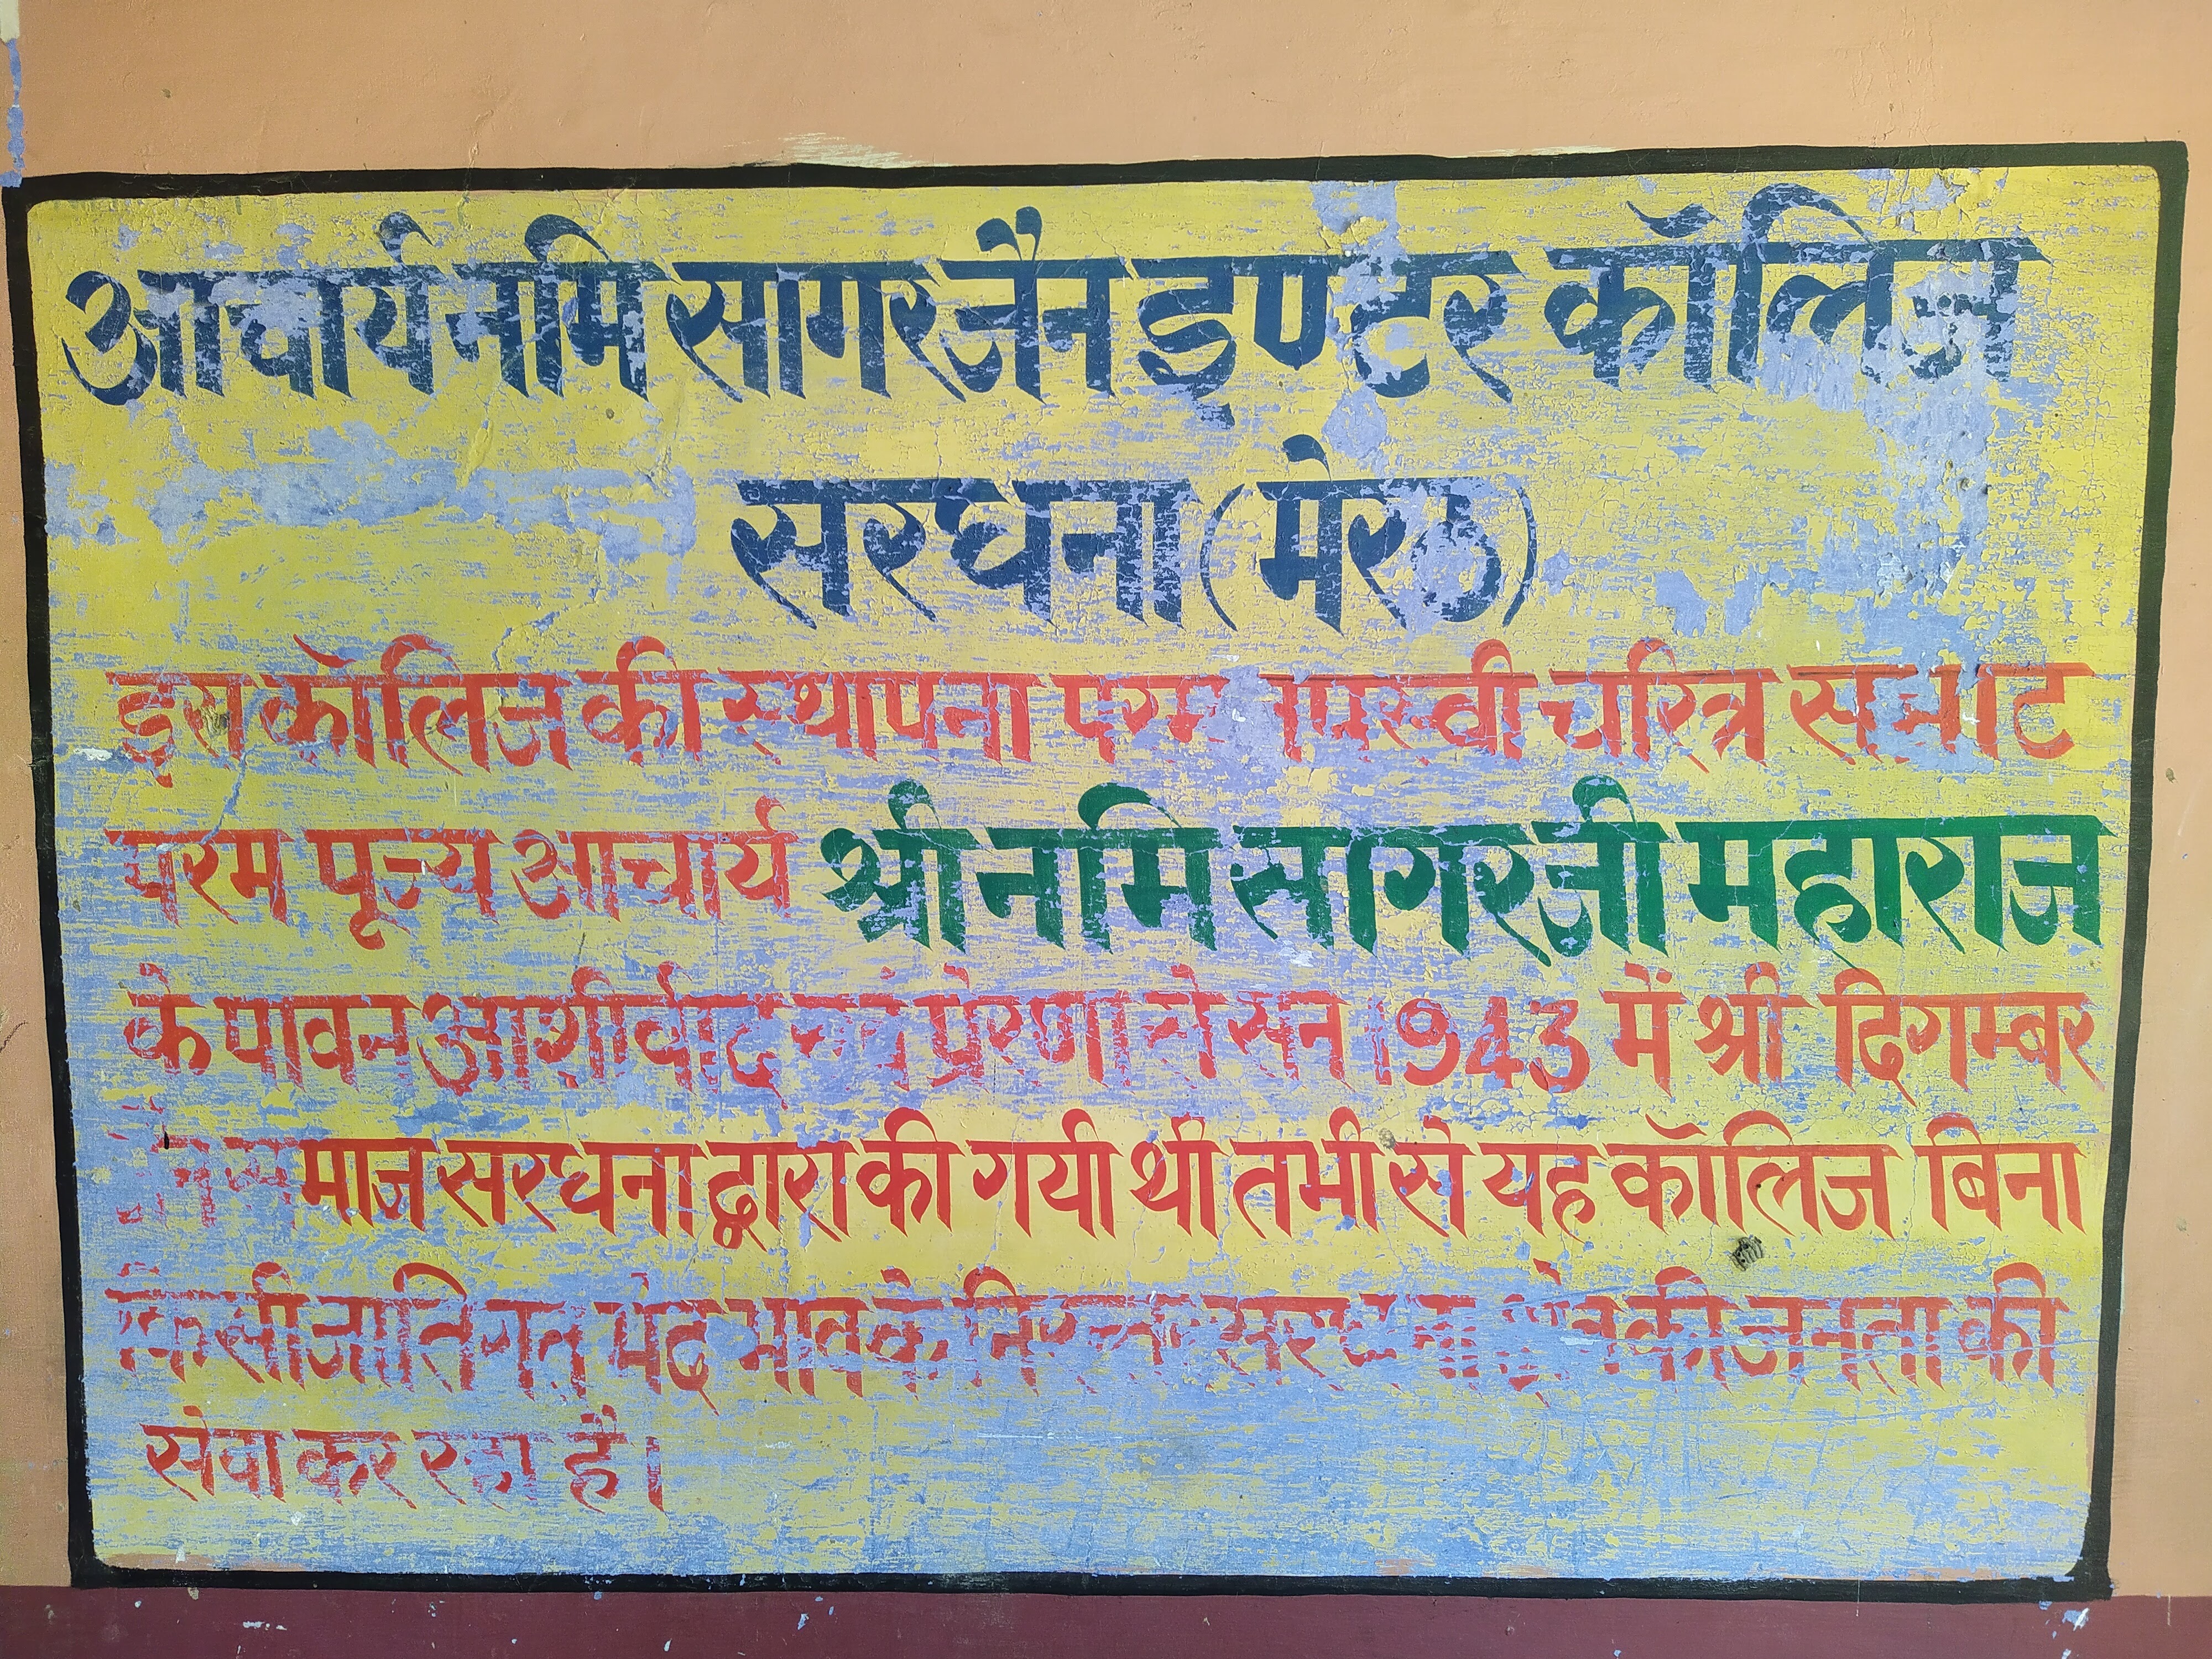 आचार्य नमि सागर जैन इण्टर कॉलिज
सरधना (मेरठ)
इस कॉलिज की स्थापना परम तपस्वी चरित्र सम्राट
परम पूज्य आचार्य श्री नमि सागर जी महाराज
के पावन आशीर्वाद एवं प्रेरणा से सन 1943 में श्री दिगम्बर
समाज सरधना द्वारा की गयी थी तभी से यह कॉलिज बिना
किसी जातिगत भेद भाव के निरन्तर सरधना क्षेत्र की जनता की
सेवा कर रहा है।